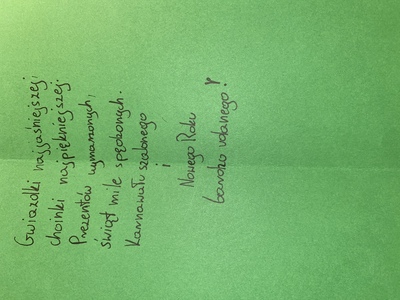 Gwiazdki najjaśniejszej,
choinki najpiękniejszej.
Prezentów wymarzonych,
świąt mile spędzonych.
Karnawału szalonego
i
Nowego Roku
bardzo udanego!